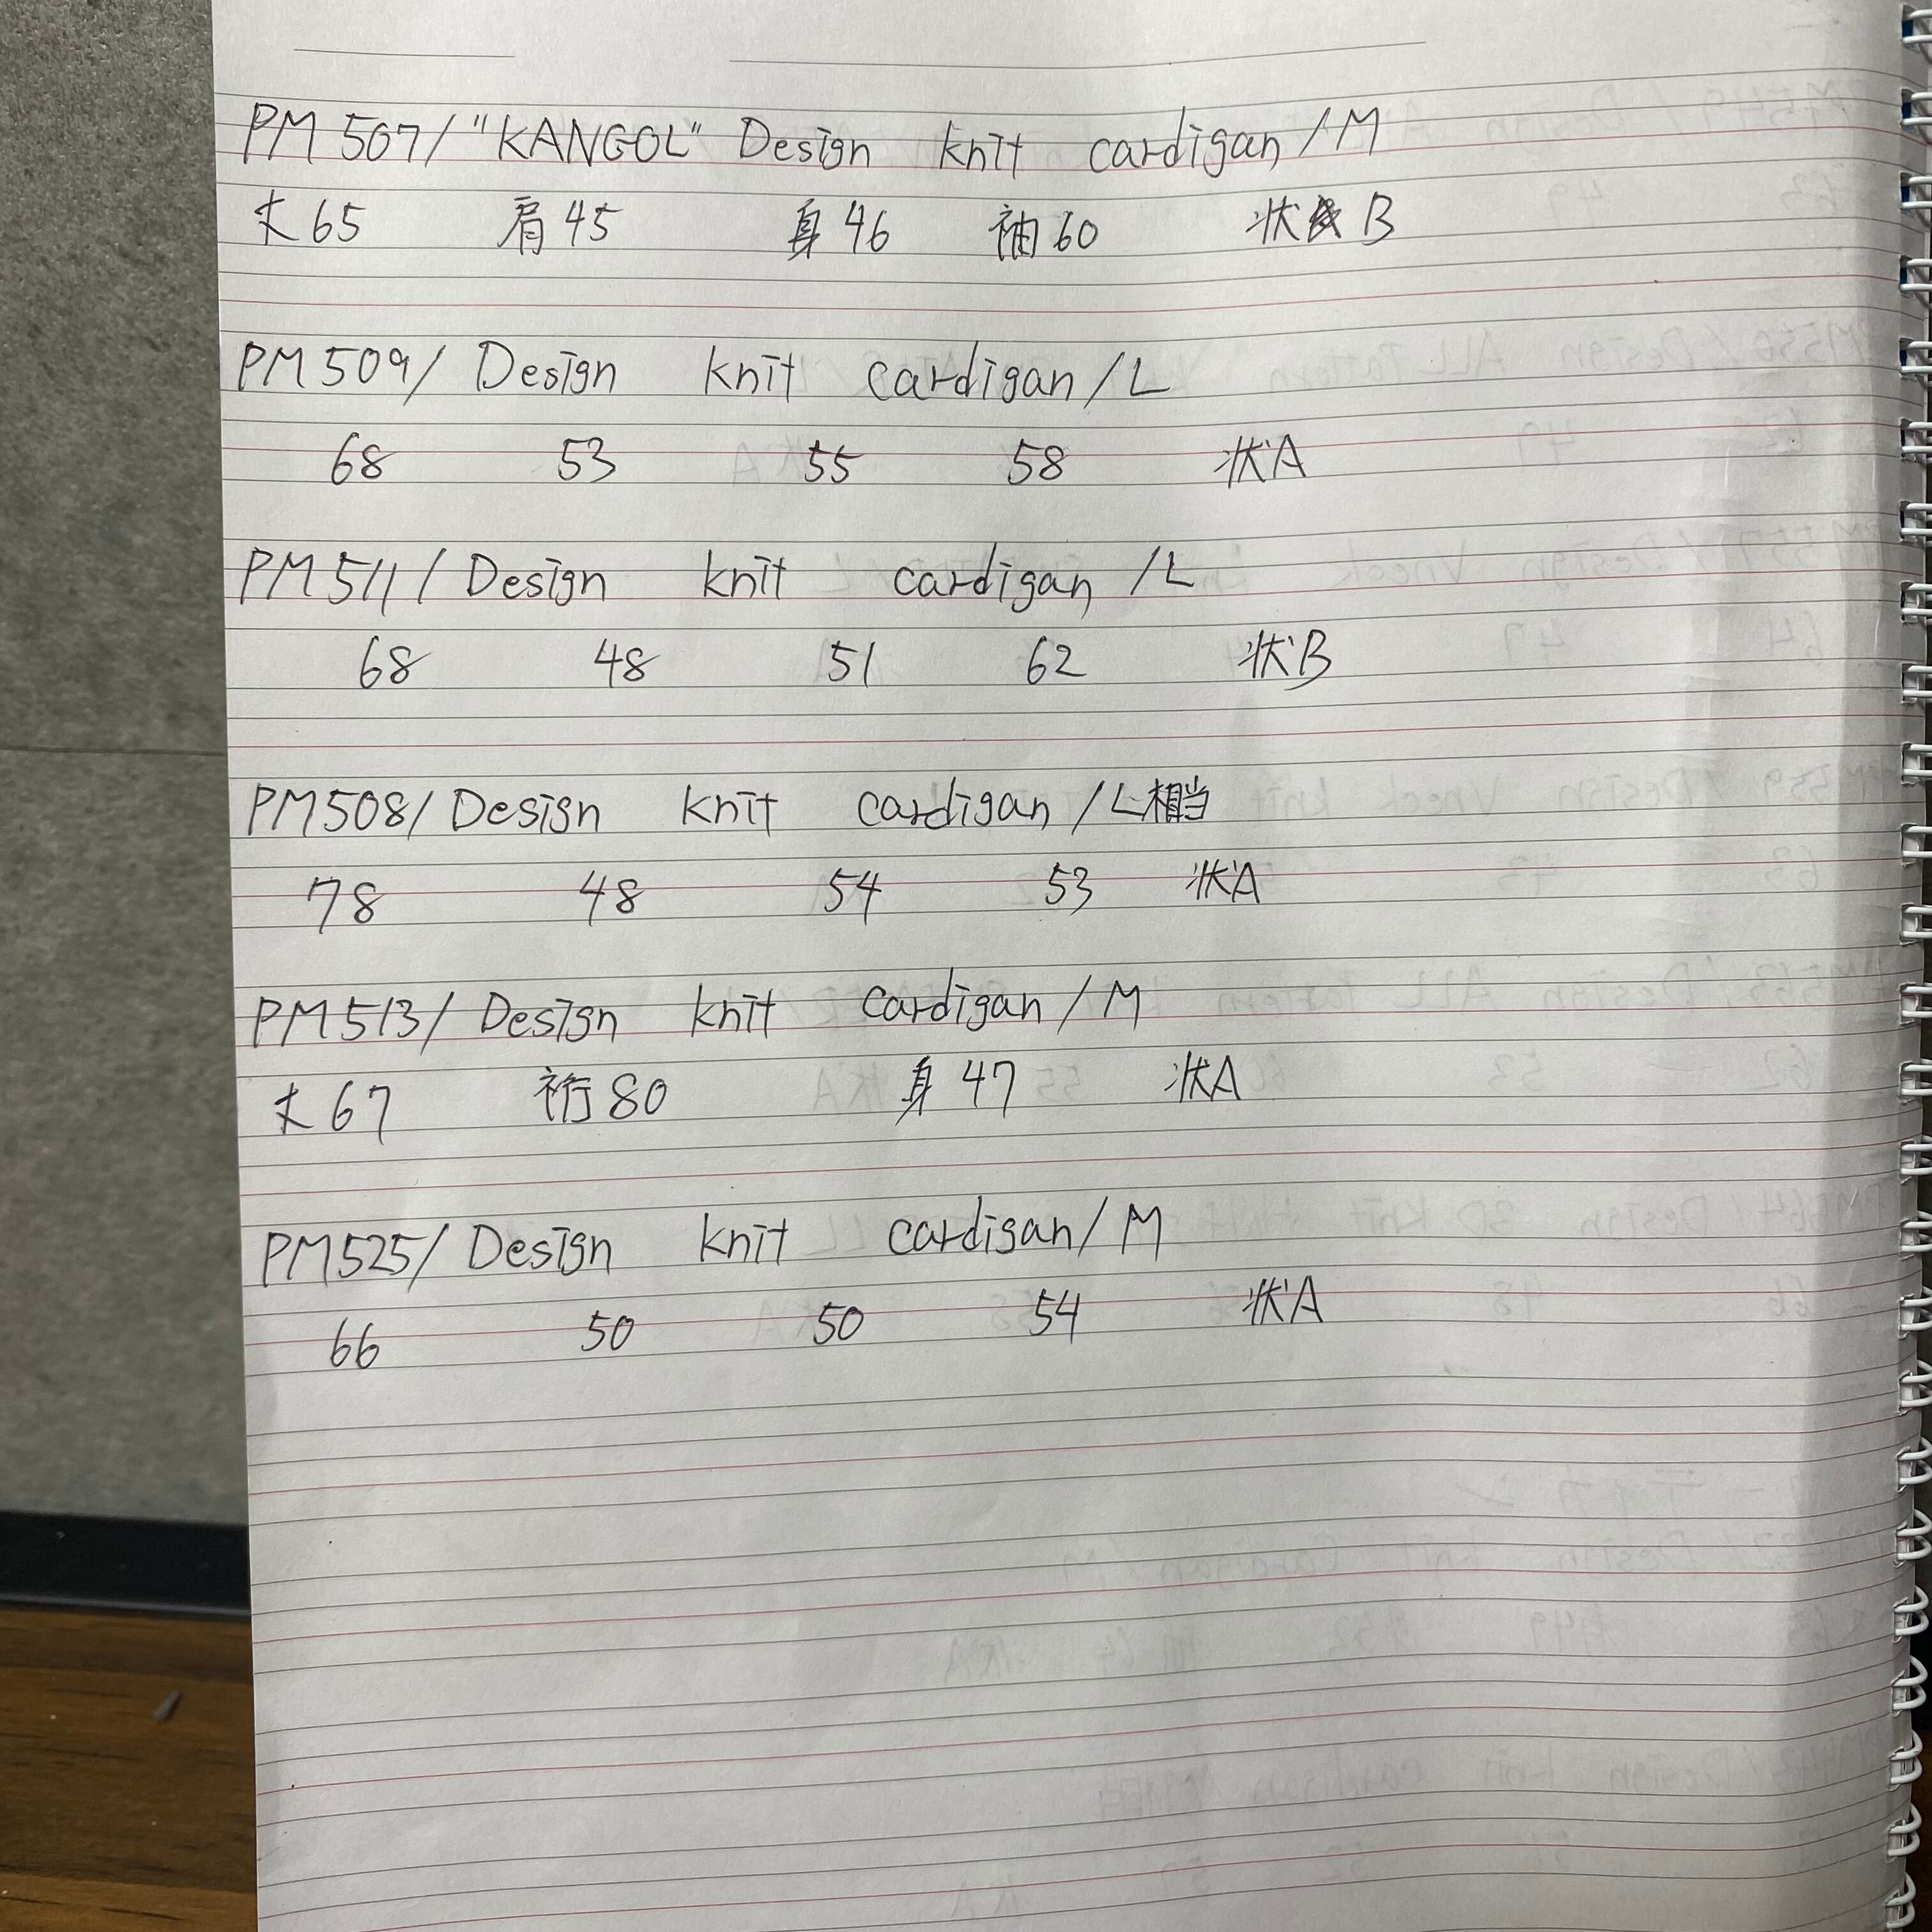 PM507/"KANGOL" Design knit cardigan/M
丈65 肩45 身46 袖60 状B
PM509/ Design knit cardigan/L
68 53 55 58 状A
PM511/ Design knit cardigan /L
68 48 51 62 状B
PM508/ Design knit cardigan /L相当
78 48 54 53 状A
PM513/ Design knit cardigan/M
丈67 裄80 身47 状A
PM525/ Design knit cardigan/M
66 50 50 54 状A